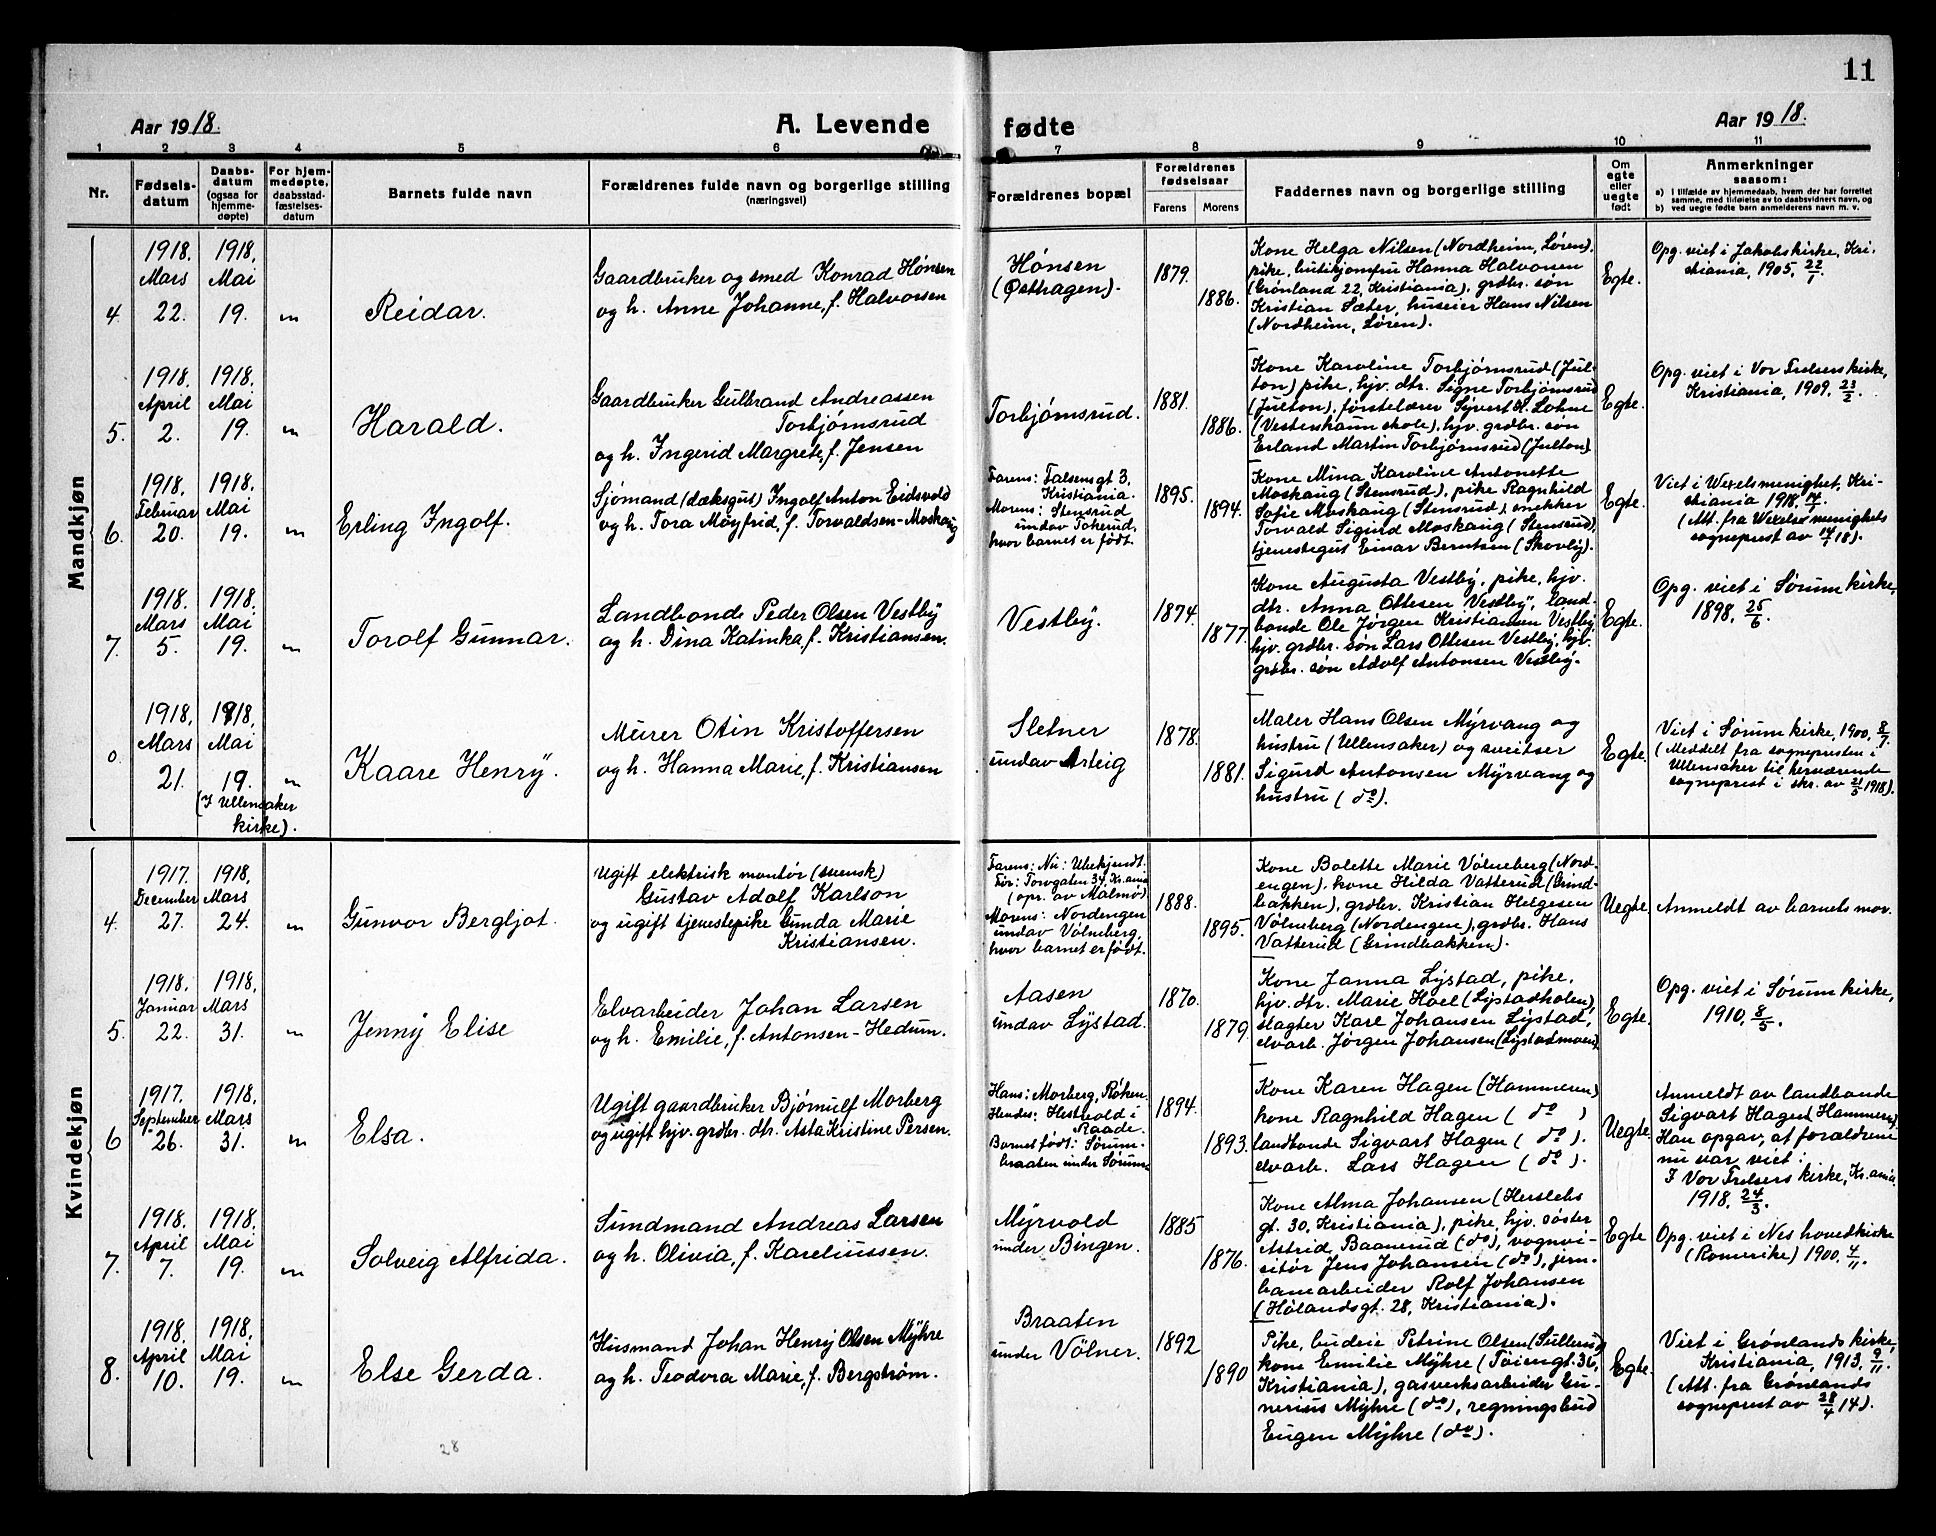 11
Aar 1918.
A. Levende fødte
Aar 1918.
1 2 3 4 5 6 7 8 9 10 11
Nr.
Fødsels-
datum
Daabs-
datum
(ogsaa for
hjemme-
døpte)
For hjem-
medøpte,
daabsstad-
fæstelses-
datum
Barnets fulde navn
Forældrenes fulde navn og borgerlige stilling
(næringsvei)
Forældrenes bopæl
Forældrenes
fødselsaar
Farens Morens
Faddernes navn og borgerlige stilling
Om
egte
eller
uegte
født
Anmerkninger
saasom:
a) I tilfælde av hjemmedaab, hvem der har forrettet
samme, med tilføielse av to daabsvidners navn, og
b) ved uegte fødte barn anmelderens navn m. v.
Mandkjøn
4.
1918.
Mars
22.
1918.
Mai
19.
"
Reidar.
Gaardbruker og smed Konrad Hønsen
og h. Anne Johanne, f. Halvorsen
Hønsen
(Østhagen).
1879.
1886.
Kone Helga Nilsen (Nordheim, Løren).
pike, butikjomfru Hanna Halvorsen
(Grønland 22, Kristiania), grdbr. søn
Kristian Sæter, huseier Hans Nilsen
(Nordheim, Løren).
Egte.
Opg. viet i Jakobs kirke, Kri-
stiania, 1905, 22/7.
5.
1918.
April
2.
1918.
Mai
19.
"
Harald.
Gaardbruker Gulbrand Andreassen
Torbjørnsrud
og h. Ingerid Margrete, f. Jensen
Torbjørnsrud.
1881.
1886.
Kone Karoline Torbjørnsrud (Jul-
ton) pike, hjv. dtr. Signe Torbjørnsrud
(Julton), førstelærer Syvert H. Lohne
(Vestenhaun skole), hjv. grdbr. søn
Erland Martin Torbjørnsrud (Julton)
Egte.
Opg. viet i Vor Frelsers kirke,
Kristiania, 1909, 23/2.
6.
1918.
Februar
20.
1918.
Mai
19.
"
Erling Ingolf.
Sjømand (dæksgut) Ingolf Anton Eidsvold
og h. Tora Møyfrid, f. Torvaldsen-Moskaug
Farens: Falsensgt 3,
Kristiania.
Morens: Stensrud
undav Tokerud,
hvor barnet er født.
1895.
1894.
Kone Mina Karoline Antonette
Moskaug (Stensrud), pike Ragnhild
Sofie Moskaug (Stensrud), snekker
Torvald Sigurd Moskaug (Stensrud),
tjenestegut Einar Berntsen (Skovly).
Egte.
Viet i Wexelsmenighet, Kri-
stiania 1918,
(Att. fra Wexelsmenighets
sogneprest av 18).
7.
1918.
Mars
5.
1918.
Mai
19.
"
Torolf Gunnar.
Landbonde Peder Olsen Vestby
og h. Dina Katinka, f. Kristiansen.
Vestby.
1874.
1877.
Kone Augusta Vestby, pike, hjv.
dtr. Anna Ottesen Vestby, land-
bonde Ole Jørgen Kristiansen Vestby
hjv. grdbr. søn Lars Ottesen Vestby, hjv.
grdbr. søn Adolf Antonsen Vestby.
Egte.
Opg. viet i Sørum kirke,
1898, 25/6.
0.
1918.
Mars
21.
1918.
Mai
19.
(I Ullensaker
kirke).
"
Kaare Henry.
Murer Otin Kristoffersen
og h. Hanna Marie, f. Kristiansen
Sletner
undav Arteig
1878.
1881.
Maler Hans Olsen Myrvang og
hustru (Ullensaker) og sveitser
Sigurd Antonsen Myrvang og
hustru (do).
Egte.
Viet i Sørum kirke, 1900, 8/7.
(Meddelt fra sognepresten i
Ullensaker til herværende
sogneprest i skr. av 21/5 1918).
Kvindekjøn
4.
1917.
December
27.
1918.
Mars
24.
"
Gunvor Bergljot.
Ugift elektrisk montør (svensk)
Gustav Adolf Karlson
og ugift tjenestepike Gunda Marie
Kristiansen.
Farens: Nu: Ubekjendt.
Før: Torvgaten 34, Kr.ania
(opr. av Malmø)
Morens: Nordengen
undav Vølneberg,
hvor barnet er født.
1888.
1895.
Kone Bolette Marie Vølneberg (Nord-
engen), kone Hilda Vatterud (Grind-
bakken), grdbr. Kristian Helgesen
Vølneberg (Nordengen), grdbr. Hans
Vatterud (Grindbakken).
Uegte.
Anmeldt av barnets mor.
5.
1918.
Januar
22.
1918.
Mars
31.
"
Jenny Elise
Elvarbeider Johan Larsen
og h. Emilie, f. Antonsen-Hedum.
Aasen
undav Lystad.
1870.
1879.
Kone Janna Lystad, pike,
hjv. dtr. Marie Hoel (Lystadholen),
slagter Karl Johansen Lystad,
elvarb. Jørgen Johansen (Lystadmoen).
Egte.
Opg. viet i Sørum kirke,
1910, 8/5.
6
1917.
September
26.
1918.
Mars
31.
"
Elsa.
Ugift gaardbruker Bjørnulf Morberg
og ugift hjv. grdbr. dtr. Asta Kristine Persen.
Hans: Morberg, Røken.
Hendes: Hestvold i
Raade.
Barnet født: Sørum-
braaten under Sørum.
1894.
1893.
Kone Karen Hagen (Hammeren)
kone Ragnhild Hagen (do)
landbonde Sigvart Hagen (do).
elvarb. Lars Hagen (do).
Uegte.
Anmeldt av landbonde
Sigvart Hagen (Hammeren).
Han opgav, at forældrene
nu var viet:
I Vor Frelsers kirke, Kr.ania
1918, 24/3.
7.
1918.
April
7.
1918.
Mai
19.
"
Solveig Alfrida.
Sundmand Andreas Larsen
og h. Olivia, f. Kareliussen.
Myrvold
under Bingen.
1885
1876.
Kone Alma Johansen (Herslebs
gt. 30, Kristiania), pike, hjv. søster
Astrid Baanerud (do), vognvi-
sitør Jens Johansen (do), jern-
banearbeider Rolf Johansen
(Hølandsgt. 28, Kristiania).
Egte
Opg. viet i Nes hovedkirke
(Romerike) 1900, 4/11.
8.
1918.
April
10.
1918.
Mai
19.
"
Else Gerda.
Husmand Johan Henry Olsen Myhre
og h. Teodora Marie, f. Bergstrøm.
Braaten
under Vølner.
1892
1890
Pike, budeie Petrine Olsen (Sullerud)
kone Emilie Myhre (Tøiengt. 36,
Kristiania), gasverksarbeider Gu-
nerius Myhre (do), regningsbud
Eugen Myhre (do).
Egte.
Viet i Grønlands kirke,
Kristiania, 1913, 9/11.
(Att. fra Grønlands
sogneprest av 28/4 14).
28